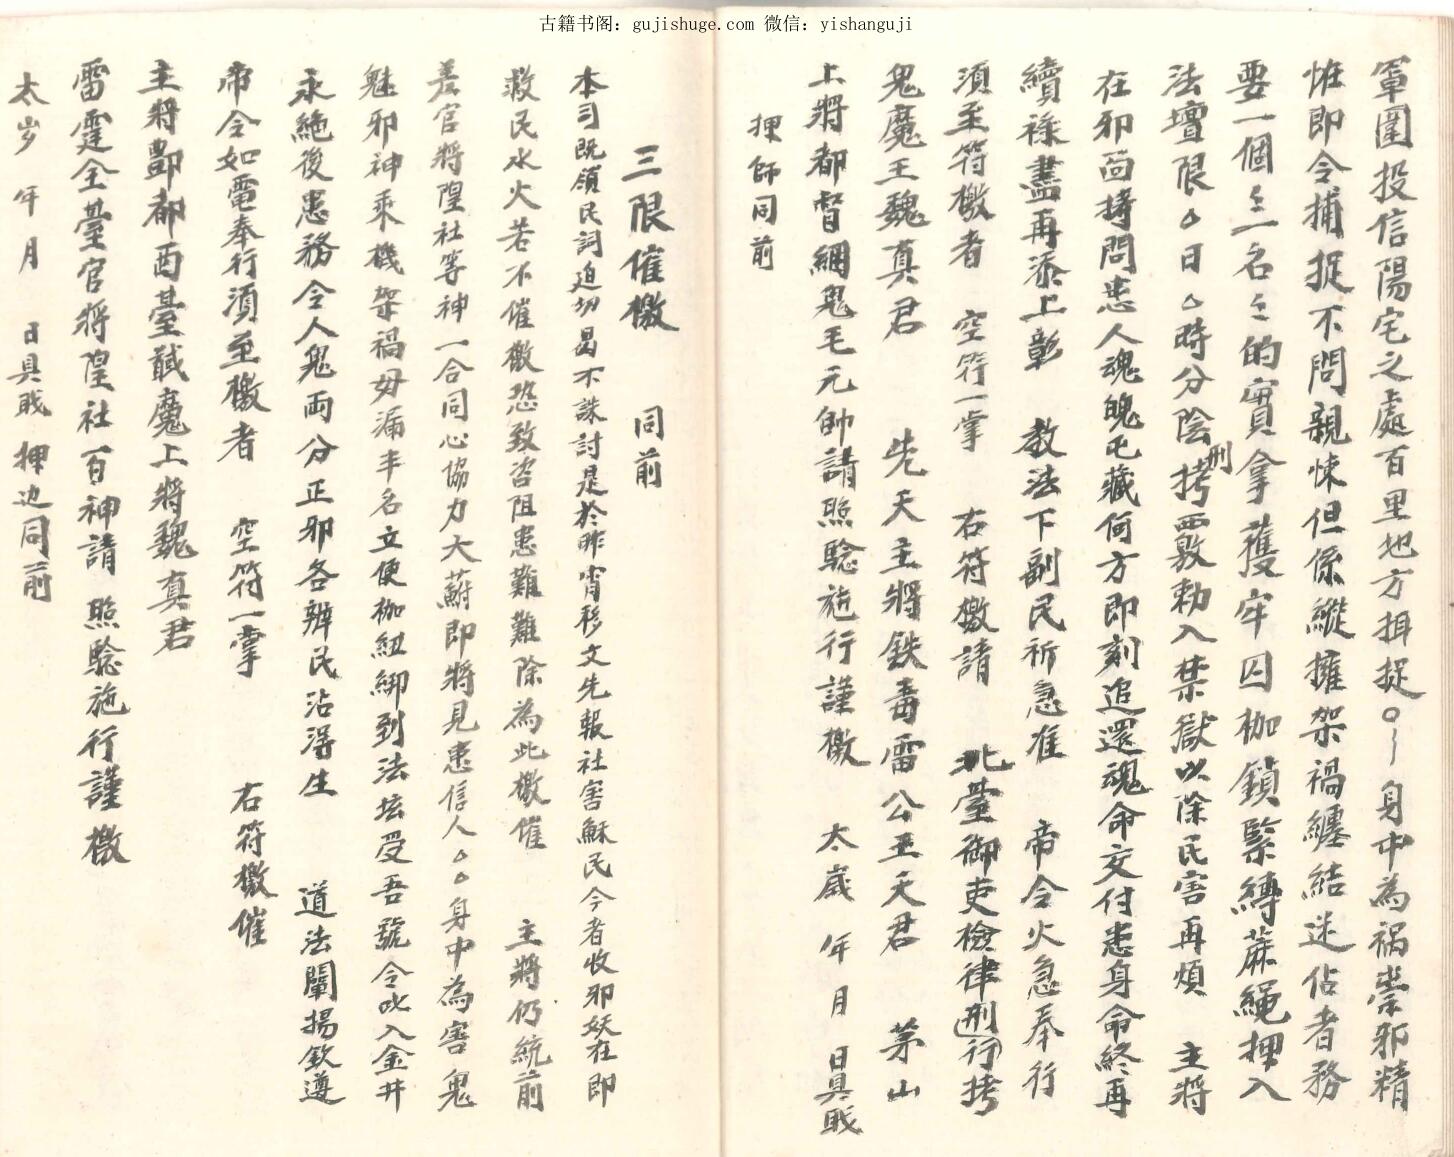 古籍书阁：gujishuge.com 微信：yishanguji
軍圍投信陽宅之處百里地方揖捉○身中為祸祟邪精
惟即令捕捉不問親悚但係縱擁架禍纏結迷佔者務
要一個〻一名〻的實拿獲牢囚枷鎖緊縛蔴繩押入
法壇限△日△時分陰拷刑覈勅入禁獄以除民害再煩　主將
在邪茴拷問患人魂魄屯藏何方即刻追還魂命交付患身命終再
續祿盡再添上彰　教法下副民祈急准　帝令火急奉行
須至符檄者　空符一掌　右符檄請　北臺御吏檢律刑行拷
鬼魔王魏真君　先天主將鉄毒雷公王天君　茅山
上將都督綑鬼毛元帥請照驗施行謹檄　太歲　年　月　日具戝
押師同前
三限催檄　同前
本司既領民詞迫切曷不誅討是於昨宵移文先報社害穌民今者收邪妖在即
救民水火若不催檄恐致咨阻患難難除為此檄催　主將仍統前
差官將隍社等神一合同心協力大蔚即將見患信人△△身中為害鬼
魅邪神乘機架禍毋漏丰名立便枷紐綁到法坛受吾號令叱入金井
永絶後患務令人鬼両分正邪各辨民沾淂生　道法闡揚欽遵
帝令如雷奉行須至檄者　空符一掌　右符檄催
主將酆都西臺馘魔上將魏真君
雷霆全臺官將隍社百神請　照驗施行謹檄
太岁　年　月　日具戝　押边同前